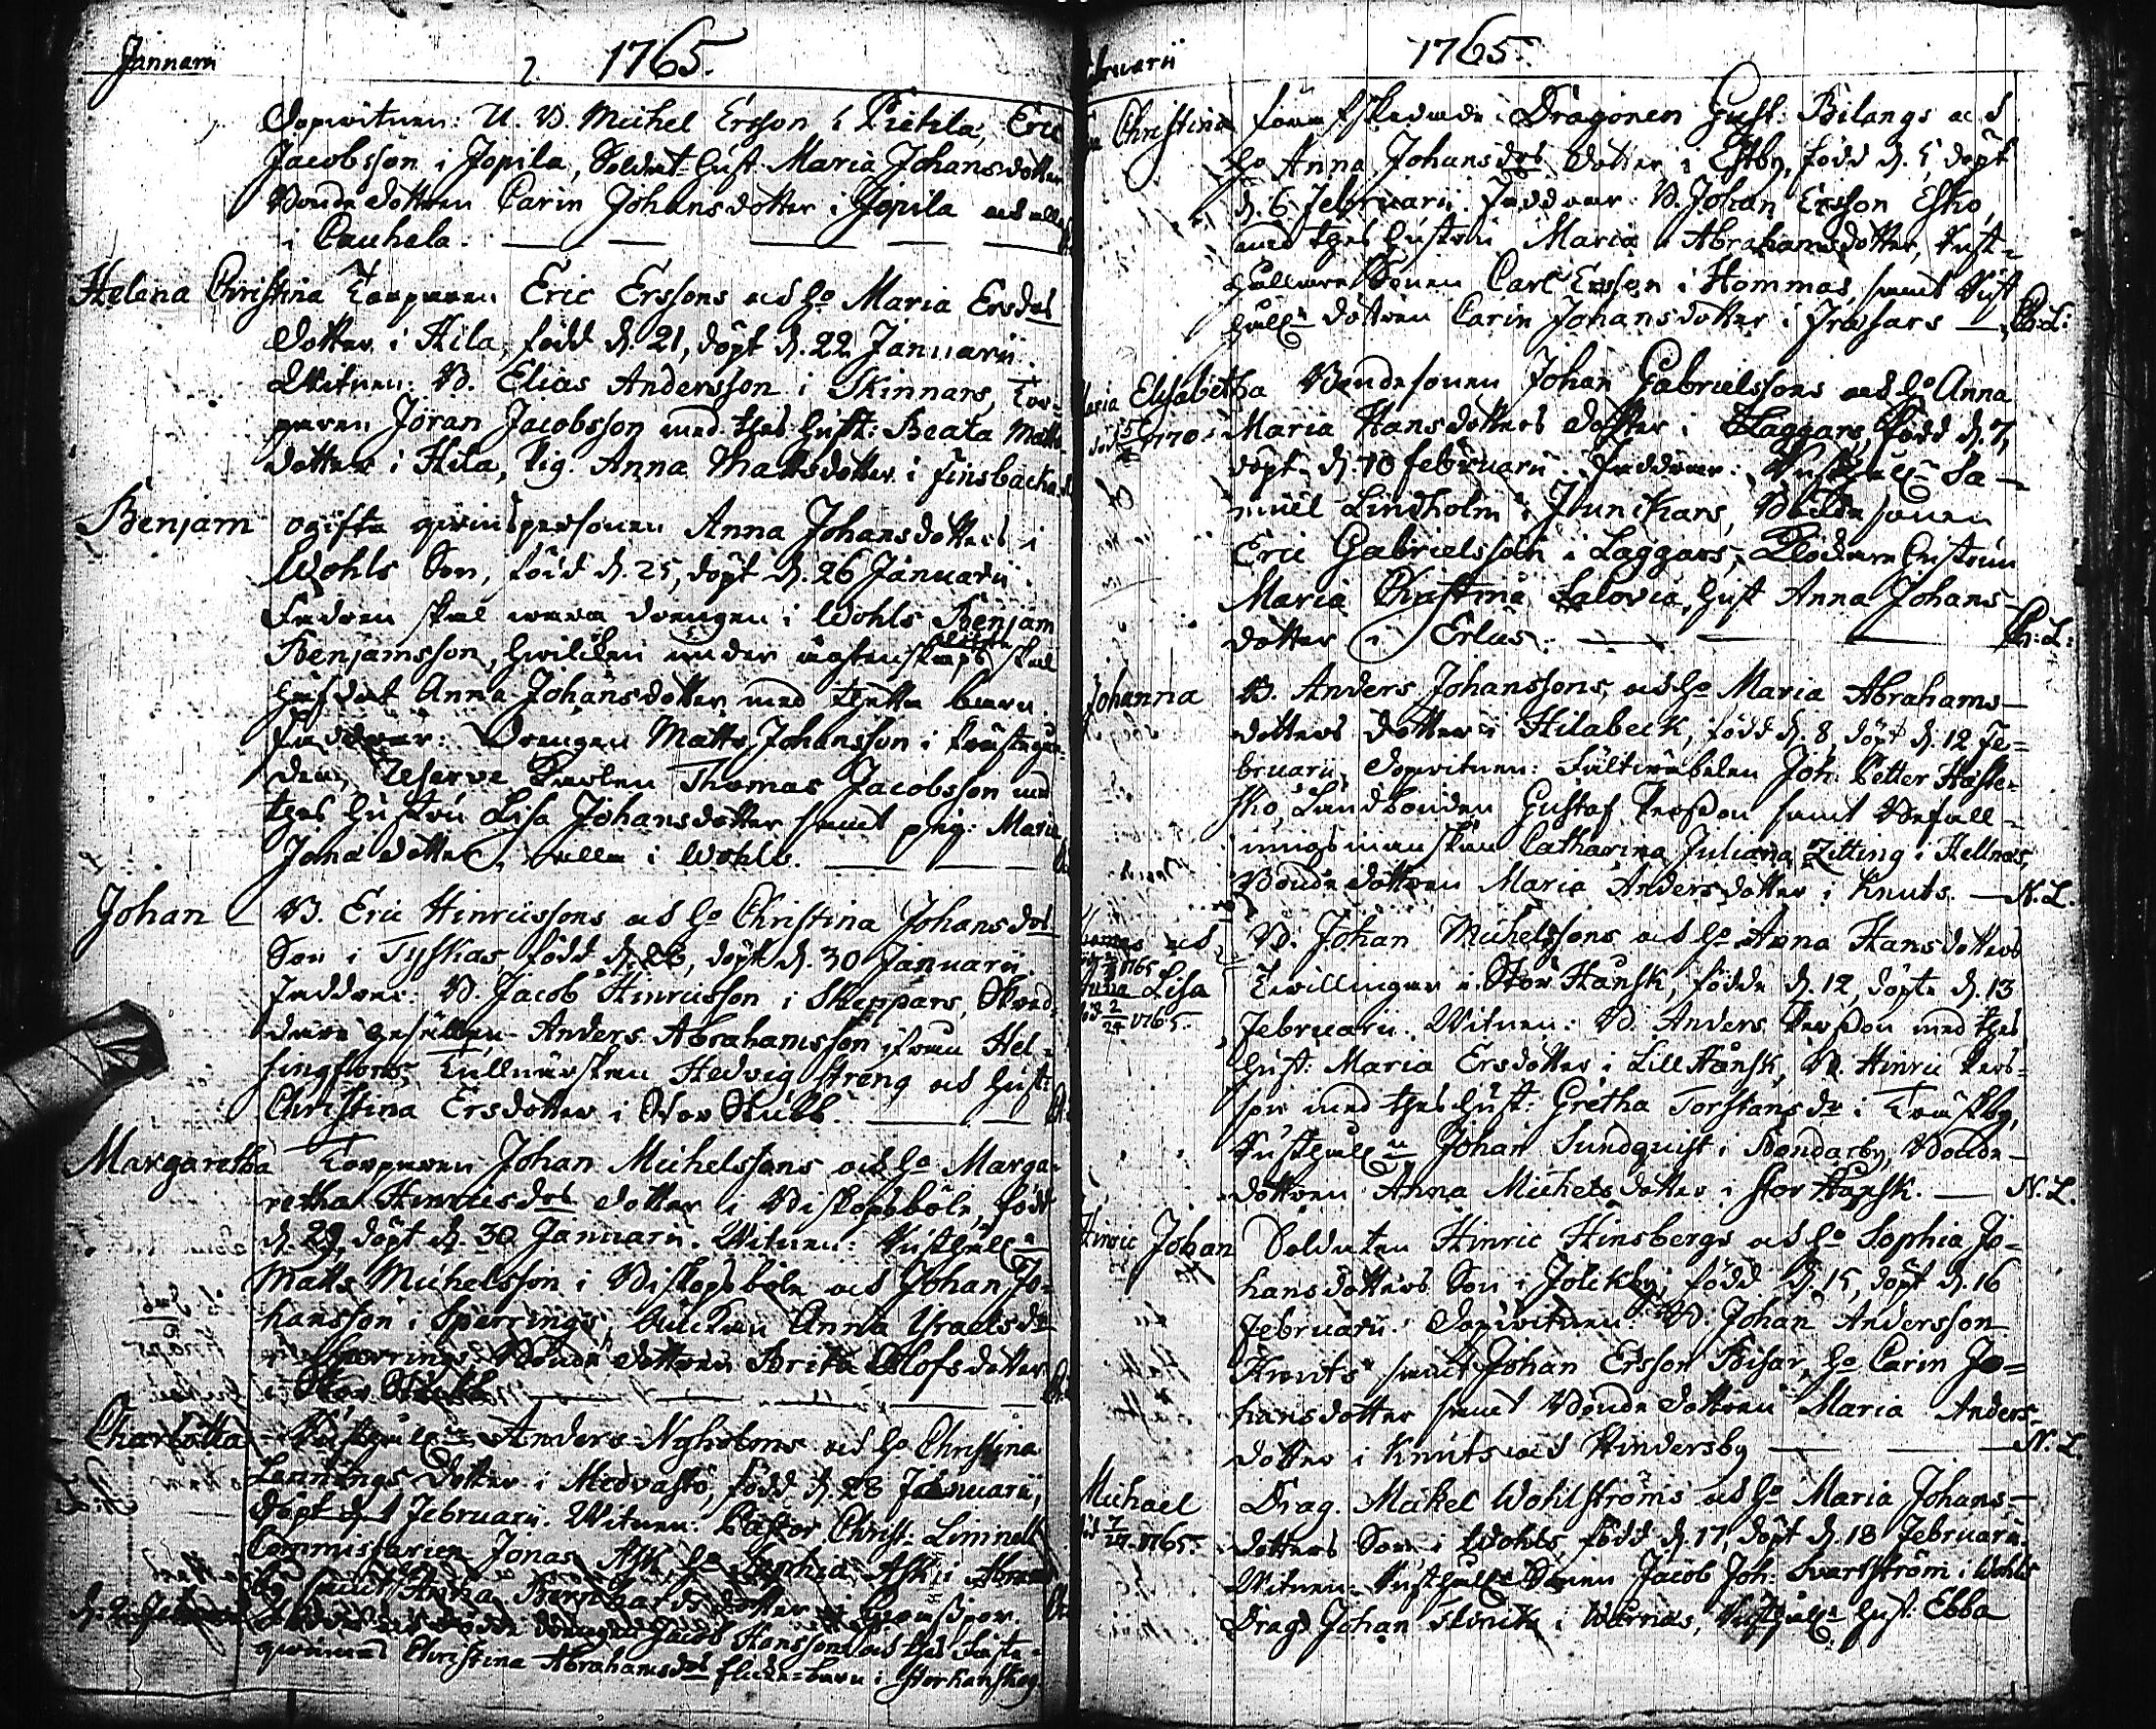 Januarii
2 1765.
Dopwitnen: U. B. Michel Ersson i Pietila, Eric
Jacobsson i Jopila, Soldat Hust. Maria Johansdotter
Bondedottren Carin Johansdotter i Jopila och alle
i Cauhala.
Helena Christina Torparen Eric Erssons och H:o Maria Ersdors
dotter i Hila, född d. 21, döpt d. 22 Januarii.
Witnen: B. Elias Andersson i Skinnars, Tor-
paren Jöran Jacobsson med thes Hust: Beata Matts
dotter i Hila, Pig. Anna Mattsdotter i Finsbacka
Benjam ogifta qwinspersonen Anna Johansdotters i
Wohls Son, född d. 25, döpt d. 26 Januarii.
Fadren skal wara drengen i Wohls Benjam
Benjamsson, hwilcken under ägtenskaps löfte skal
häfdat Anna Johansdotter med thetta barn.
Faddrar: Drengen Matts Johansson i
den, Reserve Karlen Thomas Jacobsson med
thes hustru Lisa Johansdotter samt pig: Maria
Jona dotter, alla i Wohls.
Johan B. Eric Hinricssons och H:o Christina Johansdors
Son i Tyskas, född d. 28, döpt d. 30 Januarii.
Faddrar: B. Jacob Hinricsson i Skeppars, Skred-
dare gesällen Anders Abrahamsson ifrån Hel-
singfors, Hedvig Streng och Hust:
Christina Ersdotter i Stor Stubb.
Margaretha Torparen Johan Michelssons och H:o Marga-
retha Hinricsdors dotter i Biskopsböle, född
d. 29, döpt d. 30 Januarii. Witnen: Rusthåll:n
Matts Michelsson i Biskopsböle och Johan Jo-
hansson i Sperrings, Änckan Anna Israelsdr
i Sperrings, Bonde dottren Brita Olofsdotter
i Stor Stubb.
Charlotta Rusthåll:n Anders Nyholms och H:o Christina
Lennings dotter i Medvastö, född d. 28 Januarii,
döpt d. 1 Februarii. Witnen: Pastor Christ: Liminell
Commissarien Jonas Ask H:o Sophia Ask i
by samt Anna Bernhards dotter i
drengen Jacob Hanssons och thes
qwinnas Christina Abrahamsdors flicke-barn i Storhanskog

Februarii
1765.
Christina Dragonen Gust: Bilangs och
H:o Anna Johansdors dotter i Estby, född d. 5 döpt
d. 6 Februarii. Faddrar: B. Johan Ersson Esko,
med thes Hustru Maria Abrahamsdotter, Rust-
hållare Sonen Carl Ersson i Hommas, samt Rust
håll:s dottren Carin Johansdotter i Frässars — Ch. L:
Maria Elisabetha Bondesonen Johan Gabrielssons och H:o Anna
1770. Maria Hansdotters dotter i Laggars, född d. 7,
döpt d. 10 februarii. Faddrar: Rusthåll:n Sa-
muel Lindholm i Junikars, Bonde sonen
Eric Gabrielsson i Laggars, Klockare hustrun
Maria Christina Salovia, Hust Anna Johans-
dotter i Erlas. — Ch: L:
Johanna B. Anders Johanssons och H:o Maria Abrahams-
dotters dotter i Hilabeck, född d. 8, döpt d. 12 Fe-
bruarii, Dopwitnen: Joh: Petter
Landbonden Gustaf Persson samt Befall-
ningsmanskan Catharina Juliana Zitting i Hellnäs,
Bonde dottren Maria Andersdotter i Knuts. — N. L.
Thomas och B. Johan Michelssons och H:o Anna Hansdotters
1765
Anna Lisa Twillingar i Stor Hansk, födde d. 12, döpte d. 13
död 2/24 1765. Februarii. Witnen: B. Anders Persson med thes
Hust: Maria Ersdotter i Lill Hansk, B. Hinric Pers-
son med thes Hust: Gretha Torstans dr i Träskby,
Rusthåll:n Johan Sundquist i Bondarby, Bonde
dottren Anna Michelsdotter i Stor Hansk. — N. L.
Hinric Johan Soldaten Hinric Hinsbergs och H:o Sophia Jo-
hansdotters Son i Jolckby, född d. 15, döpt d. 16
Februarii. Dopwitnen: B. Johan Andersson
Knuts samt Johan Ersson Bisar, H:o Carin Jo-
hansdotter samt Bonde dottren Maria Anders-
dotter i Knuts och Hindersby — N. L.
Michael Drag. Mickel Wohlströms och H:o Maria Johans-
1765. dotters Son i Wohls född d. 17, döpt d. 18 Februarii.
Witnen: Rusthåll:s Sonen Jacob Joh: Svartström i Wohls
Drag. Johan Flinck i Wärnäs, Rusthåll:s Hust: Ebba